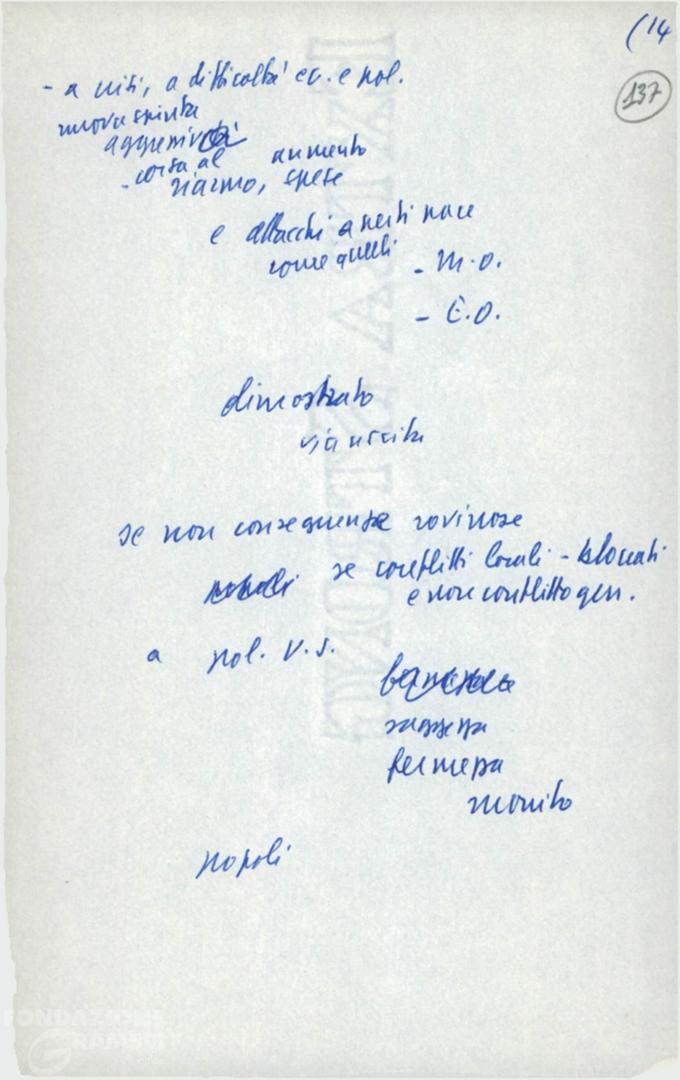 (14
137
- a crisi, a difficoltà ec. e pol.
nuova spinta
aggressività
- corsa al aumento
riarmo, spese
e attacchi a pace
come quelli
- M.O.
- E.O.
dimostrato
via uscita
se non conseguenze rovinose
se conflitti locali - bloccati
e non conflitto gen.
a pol. U.S.
saggezza
fermezza
monito
popoli
FONDAZIONE
GRAMSCI